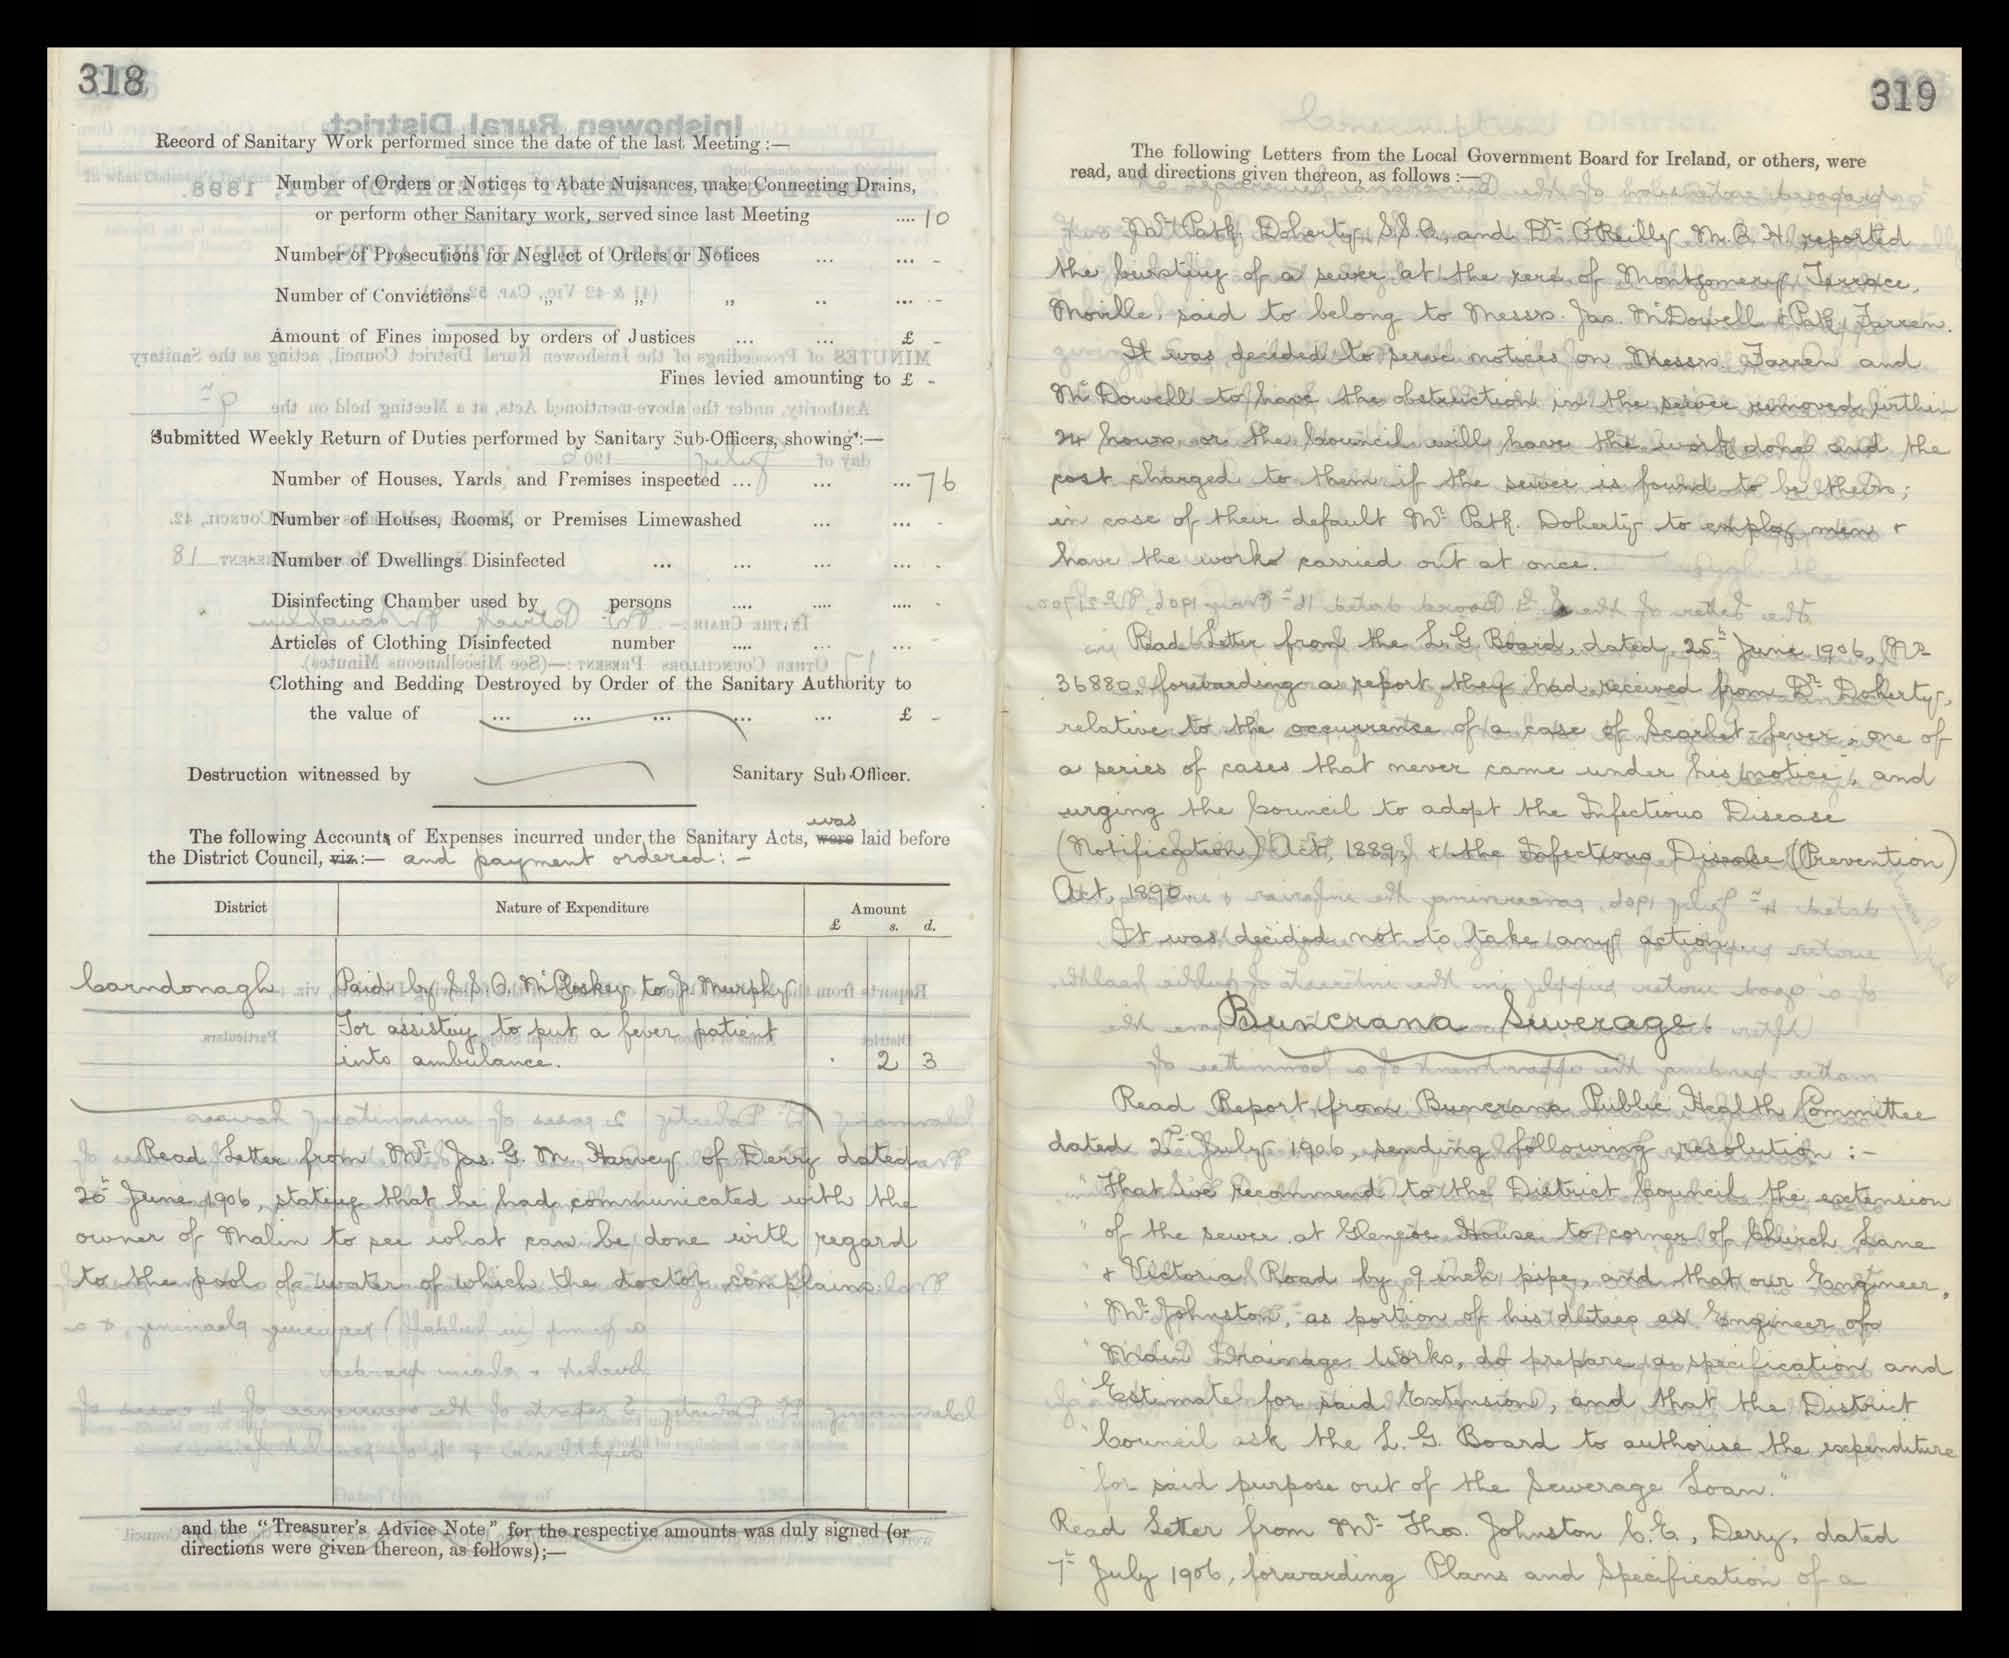 318
Record of Sanitary Work performed since the date of the last Meeting :—
Number of Orders or Notices to Abate Nuisances, make Connecting Drains,
or perform other Sanitary work, served since last Meeting .... 10
Number of Prosecutions for Neglect of Orders or Notices ... ... -
Number of Convictions „ „ „ .. ... -
Amount of Fines imposed by orders of Justices ... ... £ -
Fines levied amounting to £ -
Submitted Weekly Return of Duties performed by Sanitary Sub-Officers, showing :—
Number of Houses, Yards, and Premises inspected ... ... ... 76
Number of Houses, Rooms, or Premises Limewashed ... ... -
Number of Dwellings Disinfected ... ... ... ... -
Disinfecting Chamber used by persons .... .... .... -
Articles of Clothing Disinfected number .... ... ...
Clothing and Bedding Destroyed by Order of the Sanitary Authority to
the value of ... ... ... ... ... £ -
Destruction witnessed by Sanitary Sub-Officer.
was
The following Accounts of Expenses incurred under the Sanitary Acts, were laid before
the District Council, viz.:— and payment ordered: -
District Nature of Expenditure Amount
£ s. d.
Carndonagh Paid by S.S.O. McCloskey to J. Murphy
For assisting to put a fever patient
into ambulance. . 2 3
Read Letter from Mr Jas. G. M. Harvey of Derry dated
26th June 1906, stating that he had communicated with the
owner of Malin to see what can be done with regard
to the pool of water of which the doctor complains.
and the “Treasurer's Advice Note” for the respective amounts was duly signed (or
directions were given thereon, as follows);—
319
The following Letters from the Local Government Board for Ireland, or others, were
read, and directions given thereon, as follows :—
Mr Patk. Doherty, S.S.O., and Dr O'Reilly M.O.H. reported
the bursting of a sewer at the rere of Montgomery Terrace,
Moville, said to belong to Messrs. Jas. McDowell & Patk Farren.
It was decided to serve notices on Messrs. Farren and
McDowell to have the obstruction in the sewer removed within
24 hours or the Council will have the work done and the
cost charged to them if the sewer is found to be theirs;
in case of their default Mr Patk. Doherty to employ men &
have the works carried out at once.
Read Letter from the L. G. Board, dated 25th June 1906, No
36880, forwarding a report they had received from Dr Doherty,
relative to the occurrence of a case of Scarlet-fever, "one of
a series of cases that never came under his notice", and
urging the Council to adopt the Infectious Disease
(Notification) Act, 1889, & the Infectious Disease (Prevention)
Act, 1890.
It was decided not to take any action.
Buncrana Sewerage
Read Report from Buncrana Public Health Committee
dated 2nd July 1906, sending following resolution :-
" That we recommend to the District Council the extension
" of the sewer at Glencoe House to corner of Church Lane
" & Victoria Road by 9 inch pipe, and that our Engineer,
" Mr Johnston, as portion of his duties as Engineer of
" Main Drainage Works, do prepare a specification and
" Estimate for said Extension, and that the District
" Council ask the L. G. Board to authorise the expenditure
" for said purpose out of the Sewerage Loan."
Read Letter from Mr Thos. Johnston C.E., Derry, dated
7th July 1906, forwarding Plans and Specification of a